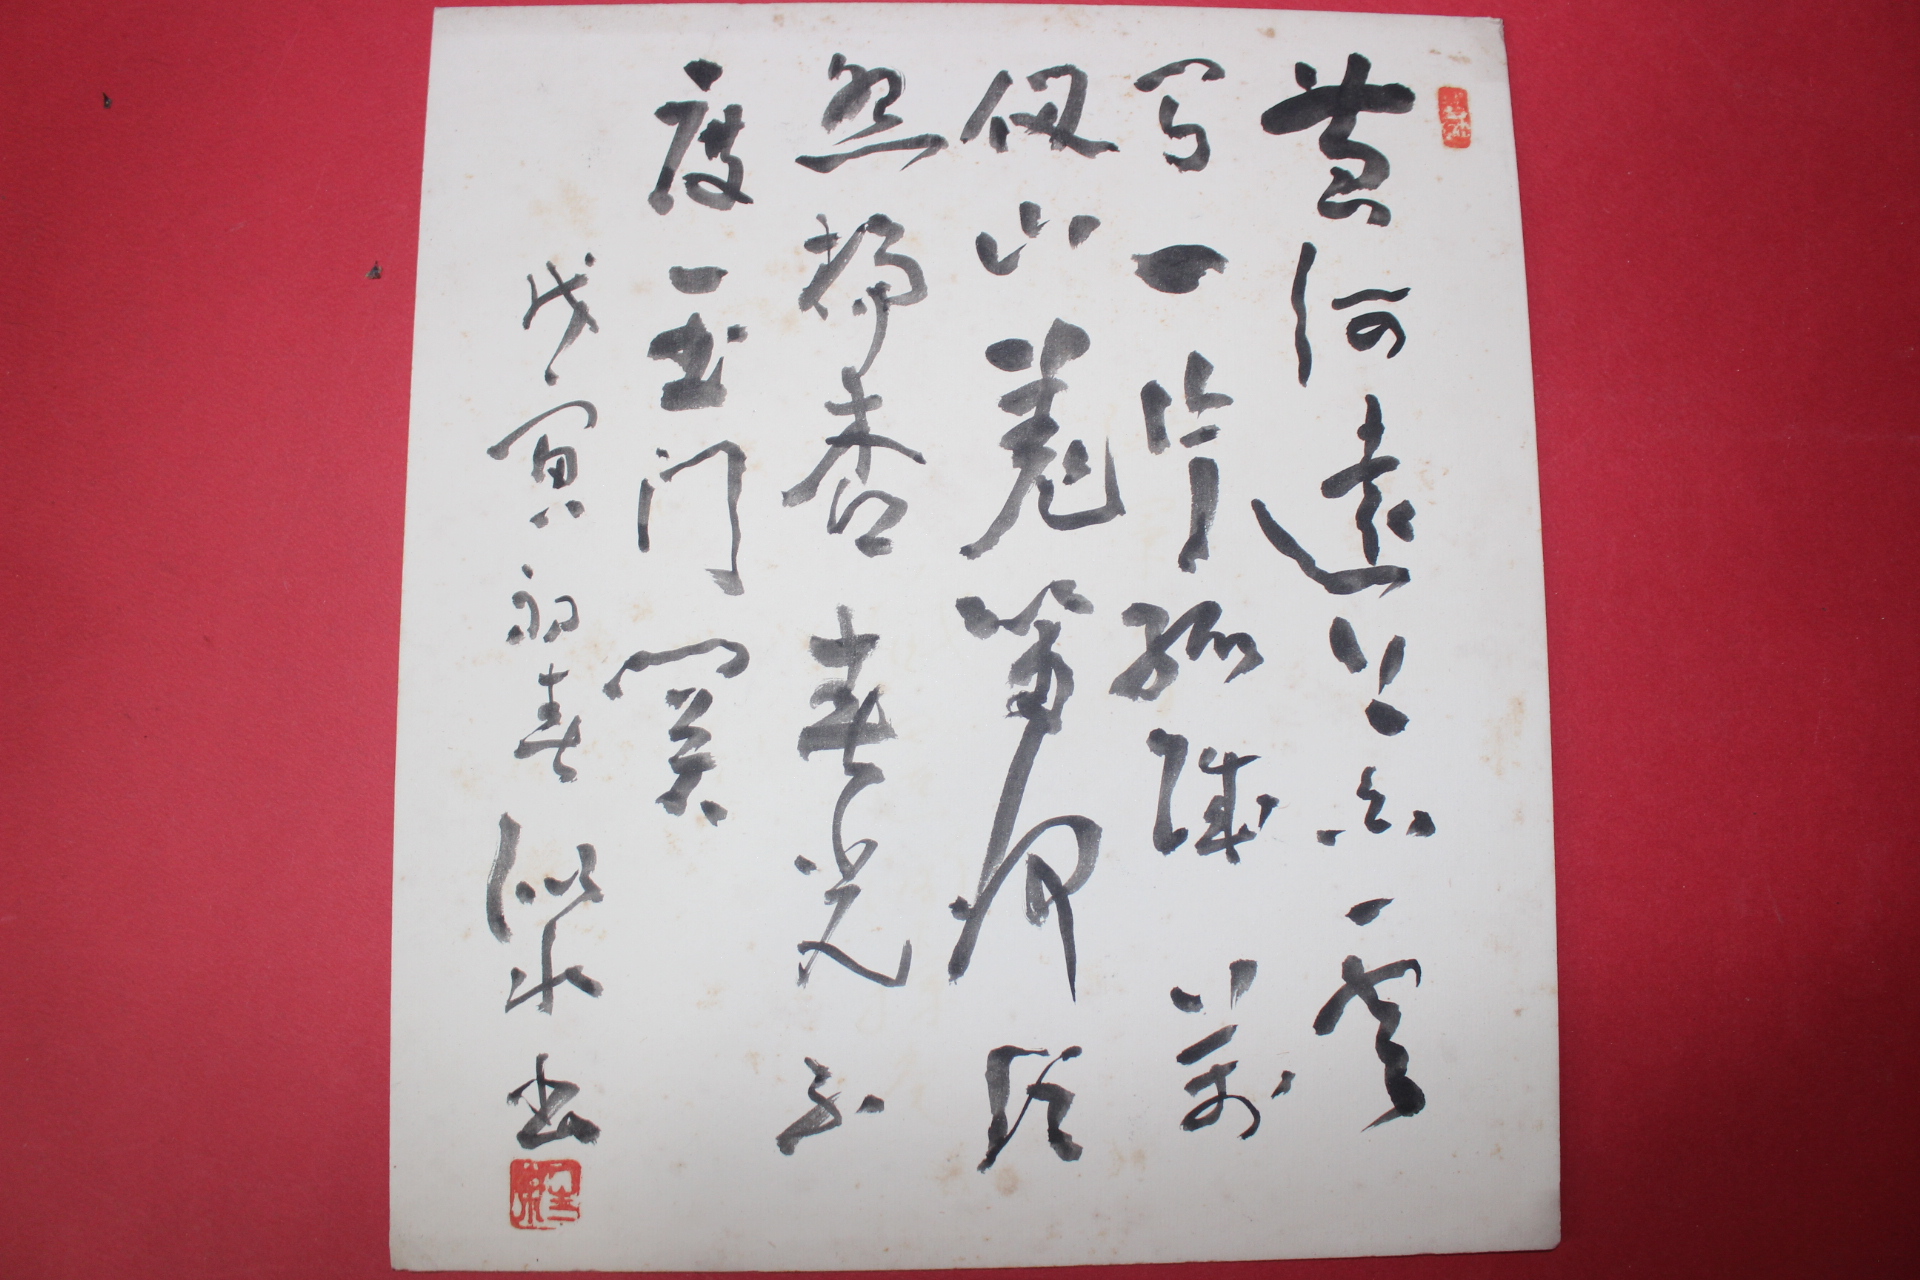 黄河遠上白雲
間一片孤城萬
仞山羌笛何須
怨楊柳春光不
度玉門關
戊寅初春似水書